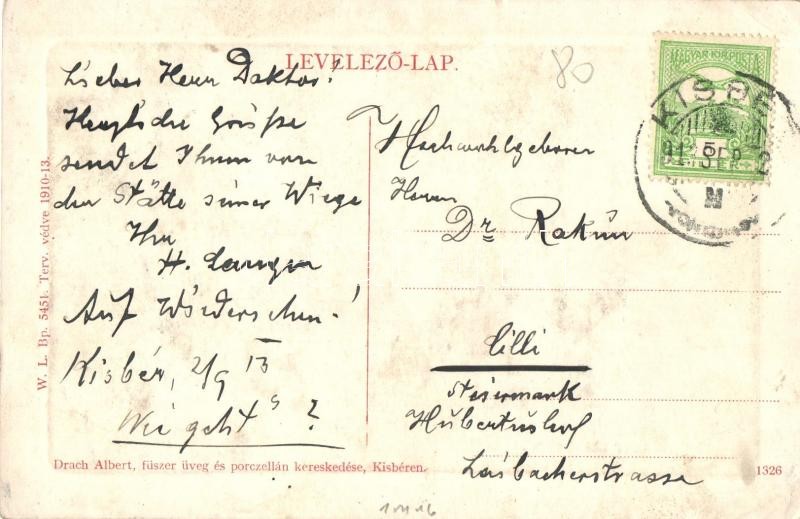 LEVELEZŐ-LAP.
80
Lieber Herr Doktor!
Herzliche Grüße
sendet Ihnen von
der Stätte seiner Wiege
Ihr
H.
Auf Wiedersehen!
Kisbér, 2/9 13
Wie geht's?
Hochwohlgeboren
Herrn
Dr Rakün
Cilli
Steiermark
Hubertushof
Laibacherstrasse
MAGYAR KIR. POSTA
KISBÉR
W. L. Bp. 5451. Terv. védve 1910-13.
Drach Albert, fűszer üveg és porczellán kereskedése, Kisbéren.
1326